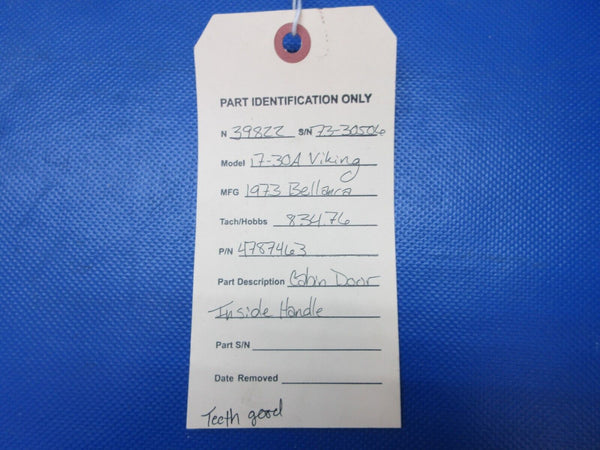 PART IDENTIFICATION ONLY
N 39822 S/N 73-30506
Model 17-30A Viking
MFG 1973 Bellanca
Tach/Hobbs 834.76
P/N 4787463
Part Description Cabin Door
Inside Handle
Part S/N
Date Removed
Teeth good